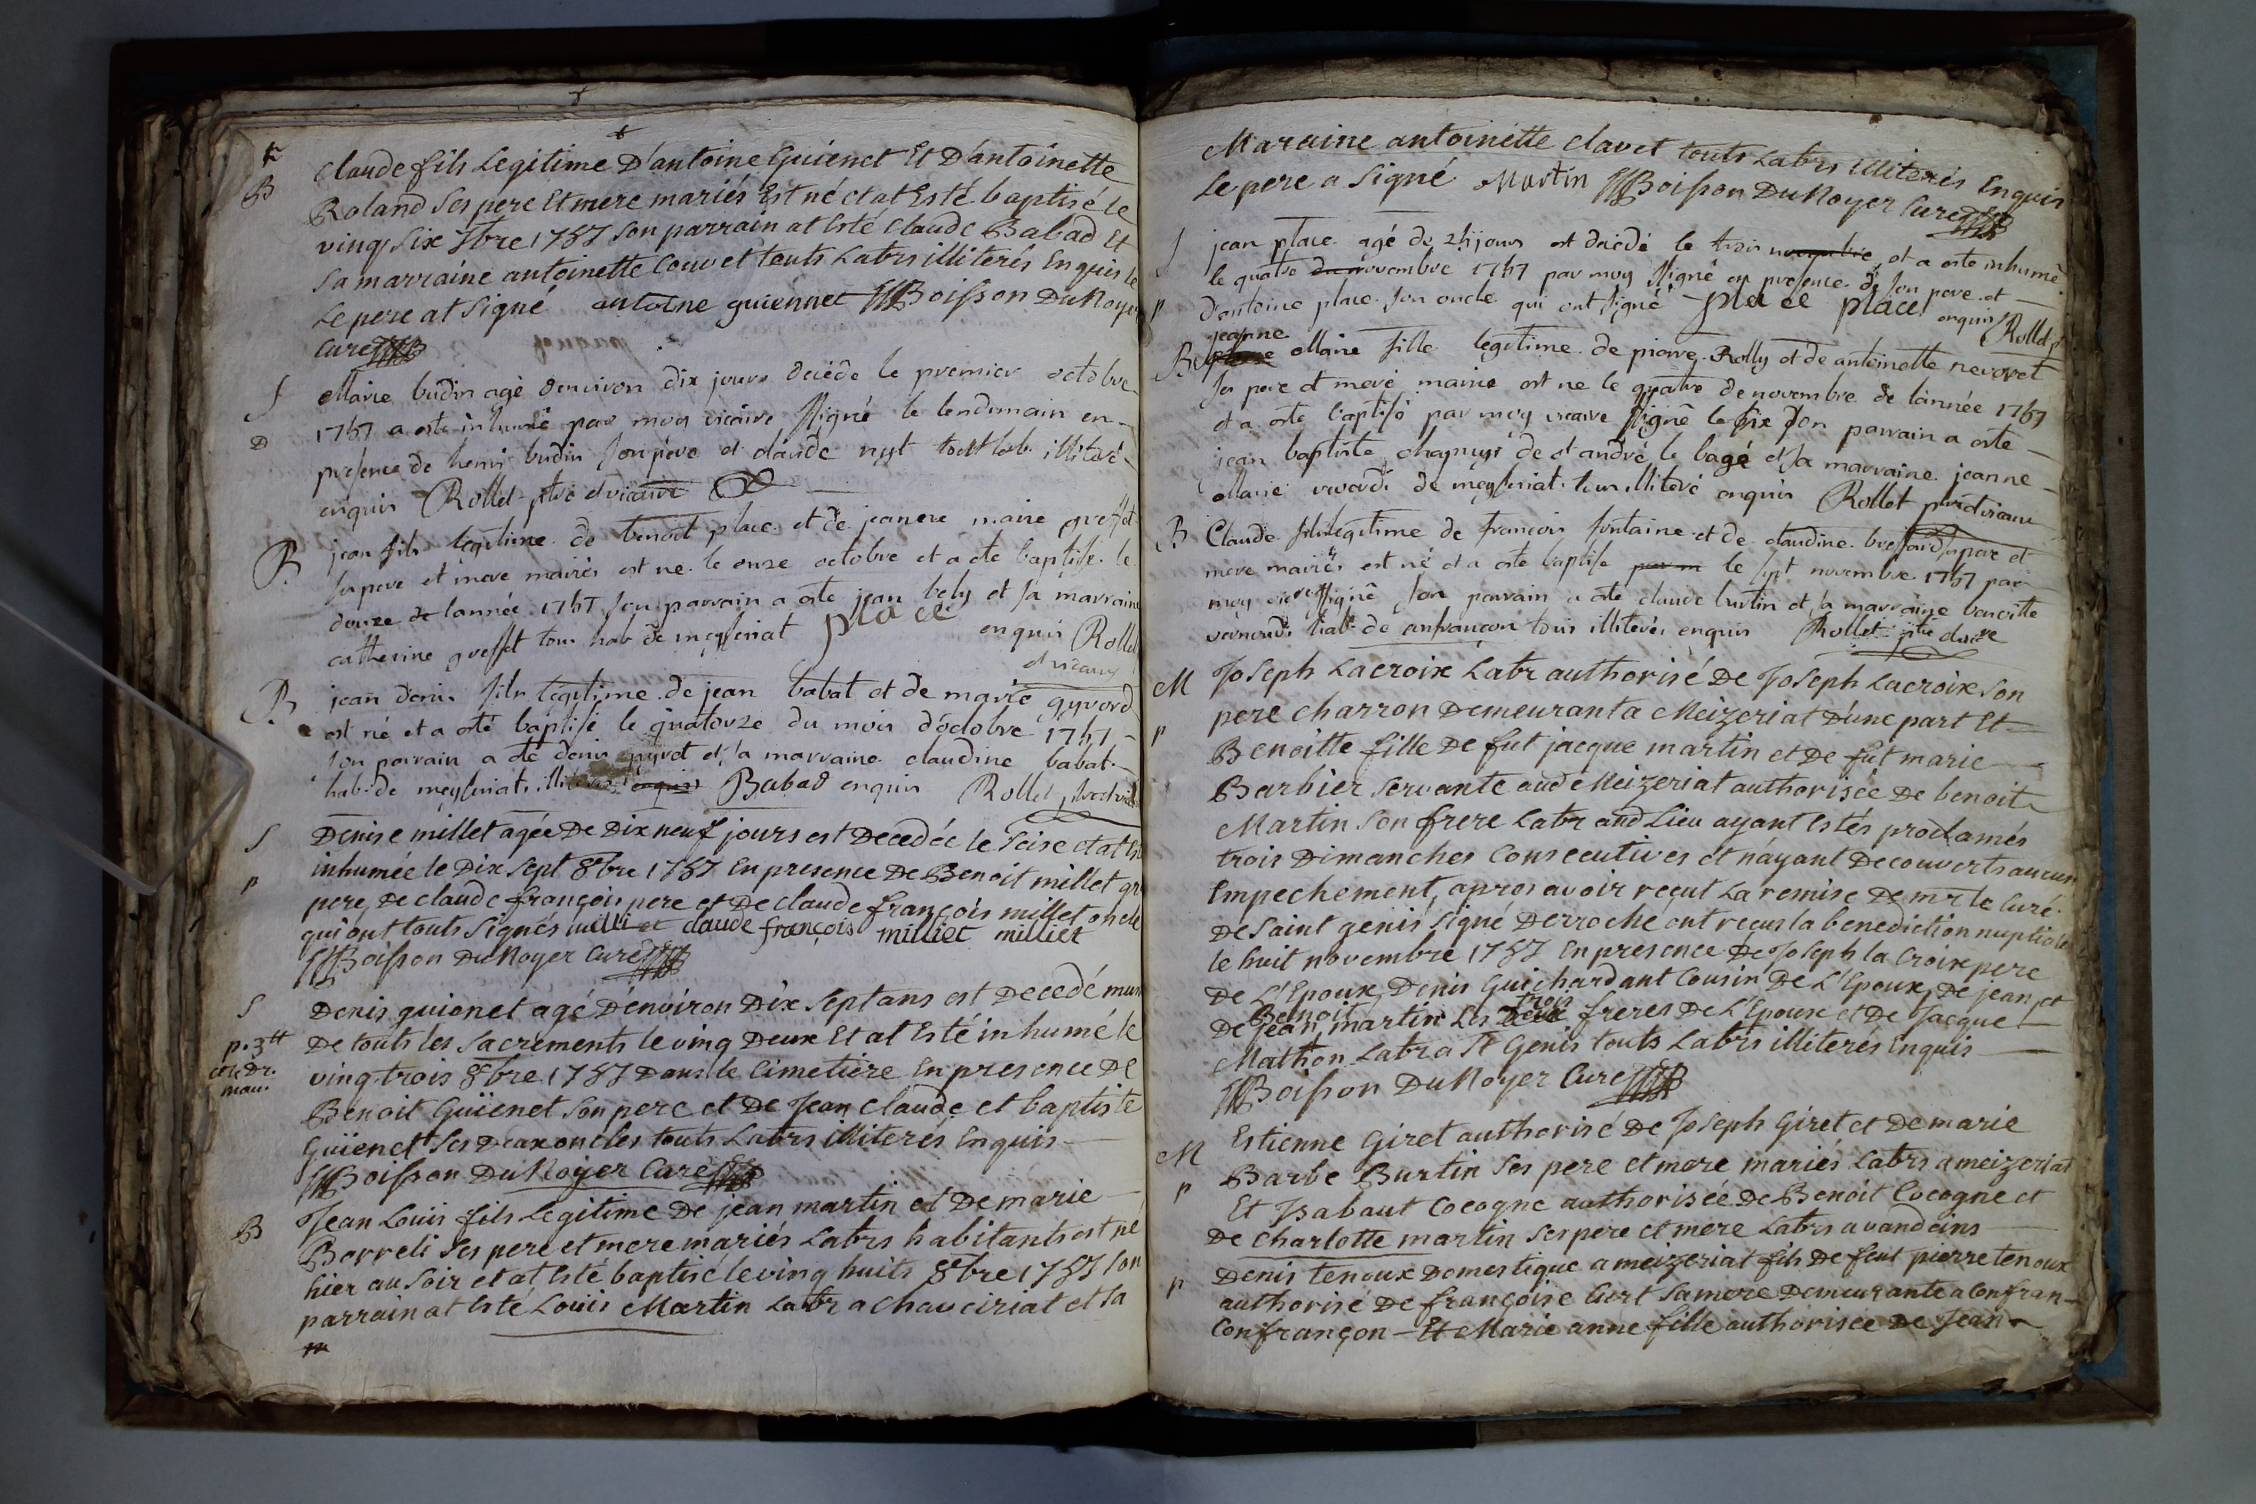 B Claude fils Legitime D'antoine Guienet Et D'antoinette
Roland Ses pere Et mere mariés Est né et at Esté baptisé le
vingt Six 7bre 1757 Son parrain at Esté Claude Babad Et
Sa marraine antoinette Couvet touts Labrs illiterés Enquis
Le pere at Signé antoine guiennet Boisson DuNoyer
Curé
S Marie budin agé denviron dix jours decédé le premier octobre
D 1757 a esté inhumé par moy vicaire Signé le lendemain en
presence de henri budin son père et claude nyt tout lab. illiteré
enquis Rollet ptre et vicaire
B jean fils legitime de benoit place et de jeanne marie greffet
ses pere et mere mariés est ne le onze octobre et a ete baptisé le
douze de lannée 1757 son parrain a ete jean bely et sa marraine
catherine greffet tous hab de meyseriat place enquis Rollet
et vicaire
B jean denis fils legitime de jean babat et de marie guyvord
est né et a esté baptisé le quatorze du mois d'octobre 1757
son parrain a ete denis guyret et sa marraine claudine babat
hab. de meyseriat illiterés enquis Babad enquis Rollet
S Denise millet agée De Dix neuf jours est Decedée le seise et at
p inhumée le Dix Sept 8bre 1757 En presence De Benoit millet
pere, De claude françois pere et De claude françois millet oncle
qui ont touts Signés milliet claude françois milliet milliet
Boisson DuNoyer Curé
S Denis guienet agé D'environ Dix Sept ans est Decedé muni
p. 3tt De touts les Sacrements le ving Deux Et at Esté inhumé le
ving trois 8bre 1757 Dans le Cimetiere En presence De
Benoit Guïenet Son pere et De Jean Claude et baptiste
Guïenet Ses Deux oncles touts Labrs illiterés Enquis
Boisson DuNoyer Curé
B Jean Louis fils Legitime De jean martin et De marie
Borreli Ses pere et mere mariés Labrs habitants est né
hier au Soir et at Esté baptisé le ving huits 8bre 1757 Son
parrain at Esté Louis Martin Labr a Chaveiriat et Sa
Maraine antoinette Clavet touts Labrs illiterés Enquis
Le pere a Signé Martin Boisson DuNoyer Curé
S jean place agé de 24 jours est decédé le trois novembre, et a este inhumé
le quatre novembre 1757 par moy Signé en presence de son pere et
p d'antoine place son oncle qui ont signé place place enquis Rollet
jeanne
B Marie fille legitime de pierre Rolly et de antoinette nevoret
ses pere et mere mariés est ne le quatre de novembre de lannée 1757
et a esté baptisé par moy vicaire Signé le six Son parrain a esté
jean baptiste chapuys de st andré le bagé et sa marraine jeanne
Marie de meyseriat tous illiteré enquis Rollet ptre et vicaire
B Claude fils legitime de françois fontaine et de claudine pere et
mere mariés est né et a esté baptisé le sept novembre 1757 par
moy vicre Signé son parrain a esté claude burtin et sa marraine benoitte
hab. de confrançon tous illiterés enquis Rollet ptre et vicre
M Joseph Lacroix Labr authorisé De Joseph Lacroix Son
p pere Charron Demeurant a Meizeriat D'une part Et
Benoitte fille De fut jacque martin et De fut marie
Barbier Servante aud Meizeriat authorisée De benoit
Martin Son frere Labr aud Lieu ayant Estés proclamés
trois Dimanches Consecutives et n'ayant Decouverts aucun
Empechement, apres avoir reçut La remise De mr le Curé
De Saint genis Signé Derroche ont reçus la benediction nuptiale
le huit novembre 1757 En presence De Joseph la Croix pere
De L'Epoux, Denis Guichardant Cousin De L'Epoux, De jean, et
Benoit trois
De jean, martin Les deux freres De L'Epouse et De Jacque
Mathon Labr a St Genis touts Labrs illiterés Enquis
Boisson DuNoyer Curé
M Estienne Giret authorisé De Joseph Giret et De marie
p Barbe Burtin Ses pere et mere mariés Labrs a meizeriat
Et Isabaut Cocogne authorisée De Benoit Cocogne et
De Charlotte martin Ses pere et mere Labrs a vandeins
p Denis tenoux Domestique a meizeriat fils De feut pierre tenoux
authorisé De françoise Curt Sa mere Demeurante a Confran-
Confrançon Et Marie anne fille authorisée De Jean